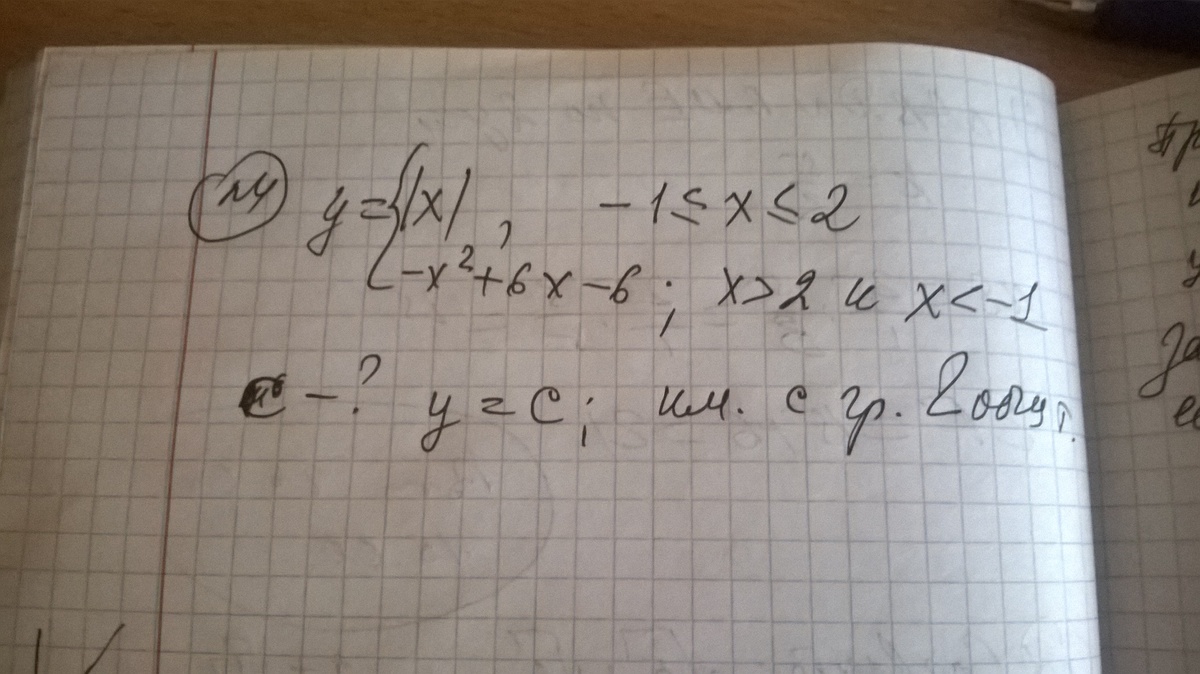 №4 y = { |x| , -1 ≤ x ≤ 2
-x² + 6x - 6 ; x > 2 и x < -1
c - ? y = c ; им. с гр. 2 общ т.